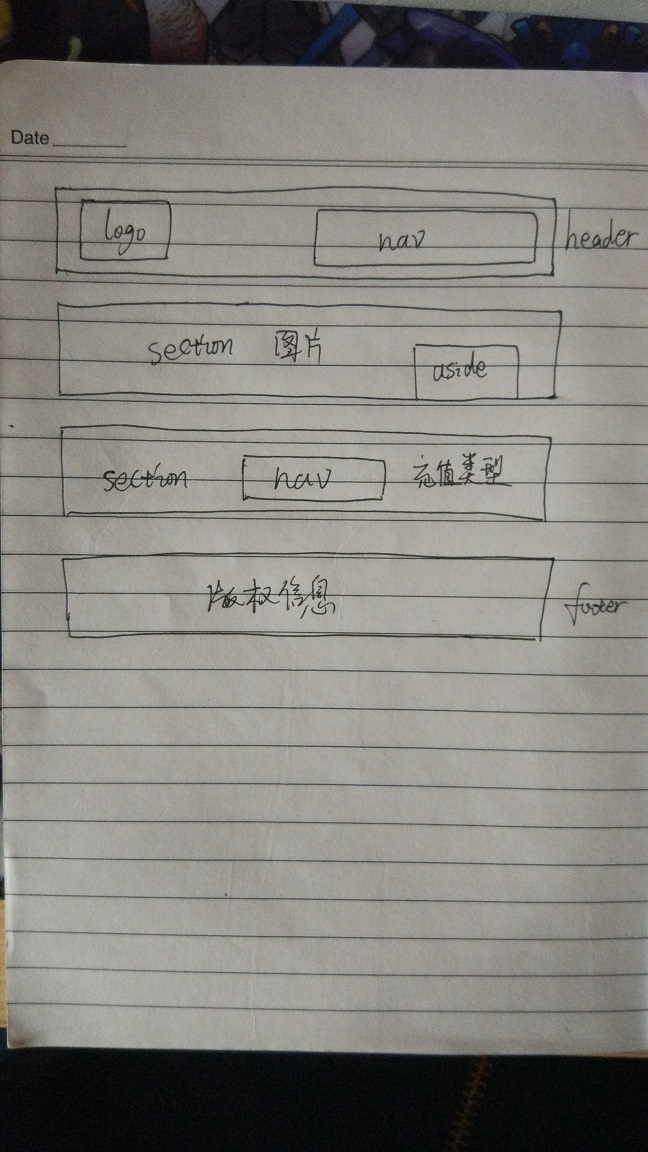 Date
logo nav header
section 图片 aside
section nav 充值类型
版权信息 footer